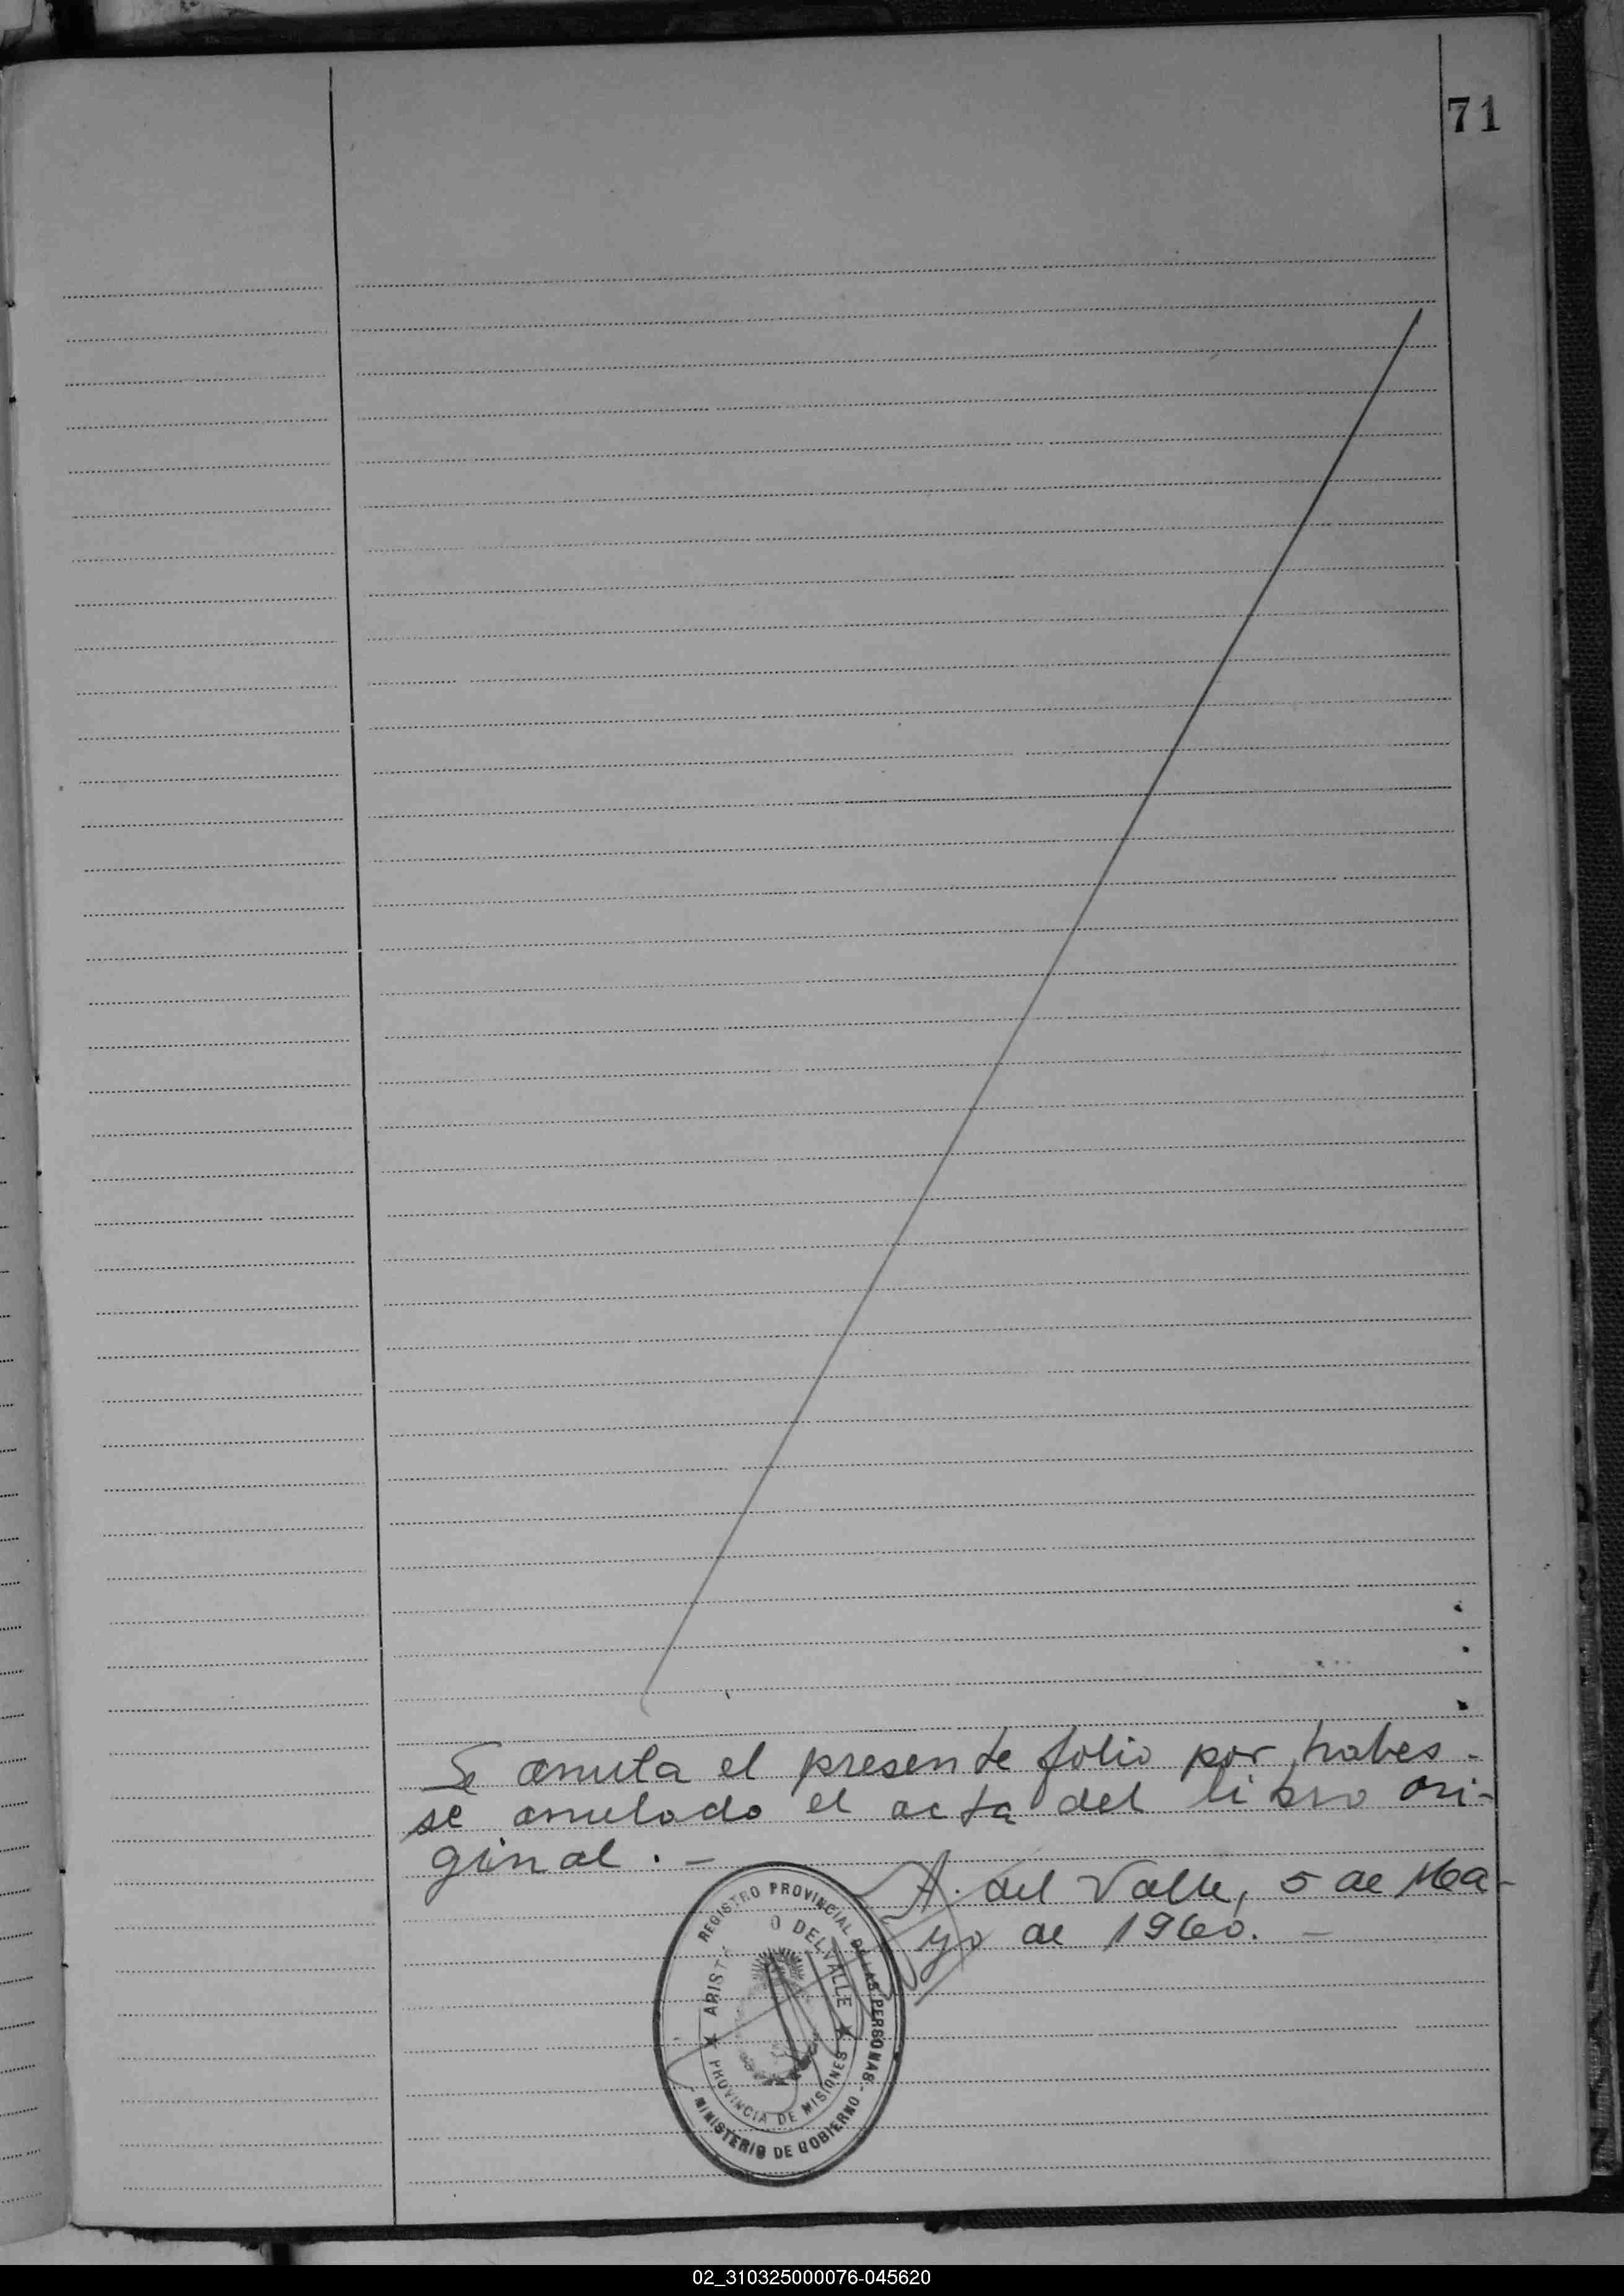 71
Se anula el presente folio por haber-
se anulado el acta del libro ori-
ginal.-
A. del Valle, 5 de Ma-
yo de 1960.-
REGISTRO PROVINCIAL DE LAS PERSONAS-
ARIST O DEL VALLE
★ PROVINCIA DE MISIONES ★
MINISTERIO DE GOBIERNO-
02_310325000076-045620